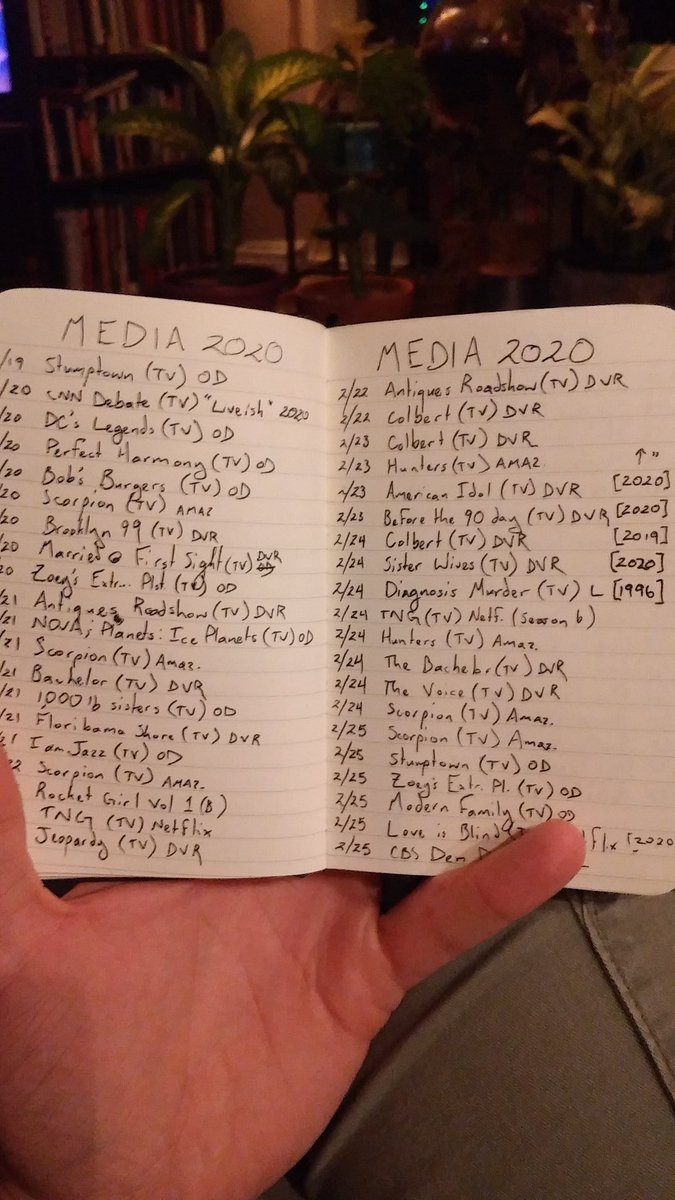 MEDIA 2020
/19 Stumptown (TV) OD
/20 CNN Debate (TV) "Liveish" 2020
/20 DC's Legends (TV) OD
/20 Perfect Harmony (TV) OD
/20 Bob's Burgers (TV) OD
/20 Scorpion (TV) AMAZ
/20 Brooklyn 99 (TV) DVR
/20 Married @ First Sight (TV) DVR
20 Zoey's Extr... Plst (TV) OD
/21 Antiques Roadshow (TV) DVR
/21 NOVA; Planets: Ice Planets (TV) OD
/21 Scorpion (TV) Amaz.
/21 Bachelor (TV) DVR
/21 1,000 lb sisters (TV) OD
/21 Floribama Shore (TV) DVR
21 I am Jazz (TV) OD
22 Scorpion (TV) AMAZ.
Rocket Girl Vol 1 (B)
TNG (TV) Netflix
Jeopardy (TV) DVR
MEDIA 2020
2/22 Antiques Roadshow (TV) DVR
2/22 Colbert (TV) DVR
2/23 Colbert (TV) DVR
2/23 Hunters (TV) AMAZ. ↑"
2/23 American Idol (TV) DVR [2020]
2/23 Before the 90 day (TV) DVR [2020]
2/24 Colbert (TV) DVR [2019]
2/24 Sister Wives (TV) DVR [2020]
2/24 Diagnosis Murder (TV) L [1996]
2/24 TNG (TV) Netf. (Season 6)
2/24 Hunters (TV) Amaz.
2/24 The Bachelor (TV) DVR
2/24 The Voice (TV) DVR
2/24 Scorpion (TV) Amaz.
2/25 Scorpion (TV) Amaz.
2/25 Stumptown (TV) OD
2/25 Zoey's Extr. Pl. (TV) OD
2/25 Modern Family (TV) OD
2/25 Love is Blind flix [2020
2/25 CBS Dem D